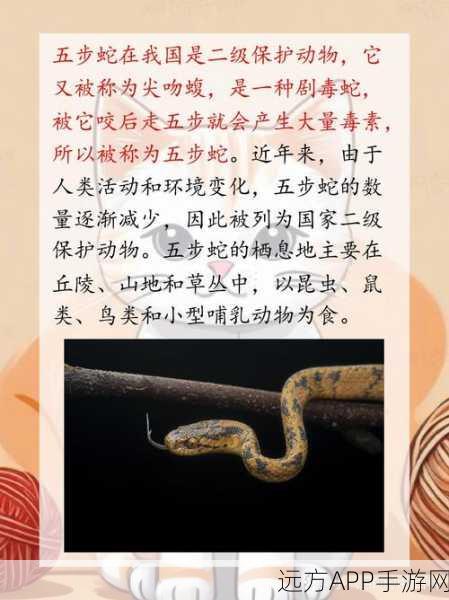 五步蛇在我国是二级保护动物，它
又被称为尖吻蝮，是一种剧毒蛇，
被它咬后走五步就会产生大量毒素，
所以被称为五步蛇。近年来，由于
人类活动和环境变化，五步蛇的数
量逐渐减少，因此被列为国家二级
保护动物。五步蛇的栖息地主要在
丘陵、山地和草丛中，以昆虫、鼠
类、鸟类和小型哺乳动物为食。
远方APP手游网